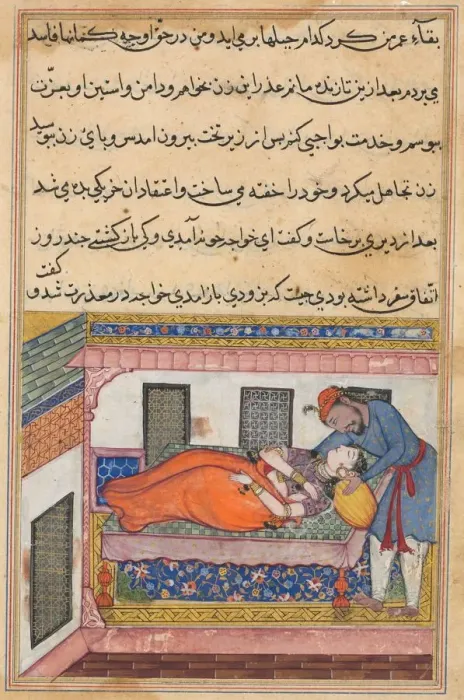 بقاء عمر من کرد کدام جبلها بر می اید و من در حق او چه کمانها فاسد
می بردم بعد ازین تا زنده مانم عذر این زن بخواهم و دامن و استین او بعزت
ببوسم و خدمت بواجبی کنم پس از زیر تخت بیرون امد سر و پای زن ببوسید
زن تجاهل میکرد و خود را خفته می ساخت و اعتقاد ان خر یکی بده می شد
بعد از دیری برخاست و گفت ای خواجه خوش آمدی و کی باز کشتی چند روز
اتفاق سفر داشته بودی چیست که بزودی باز امدی خواجه در معذرت شد و گفت